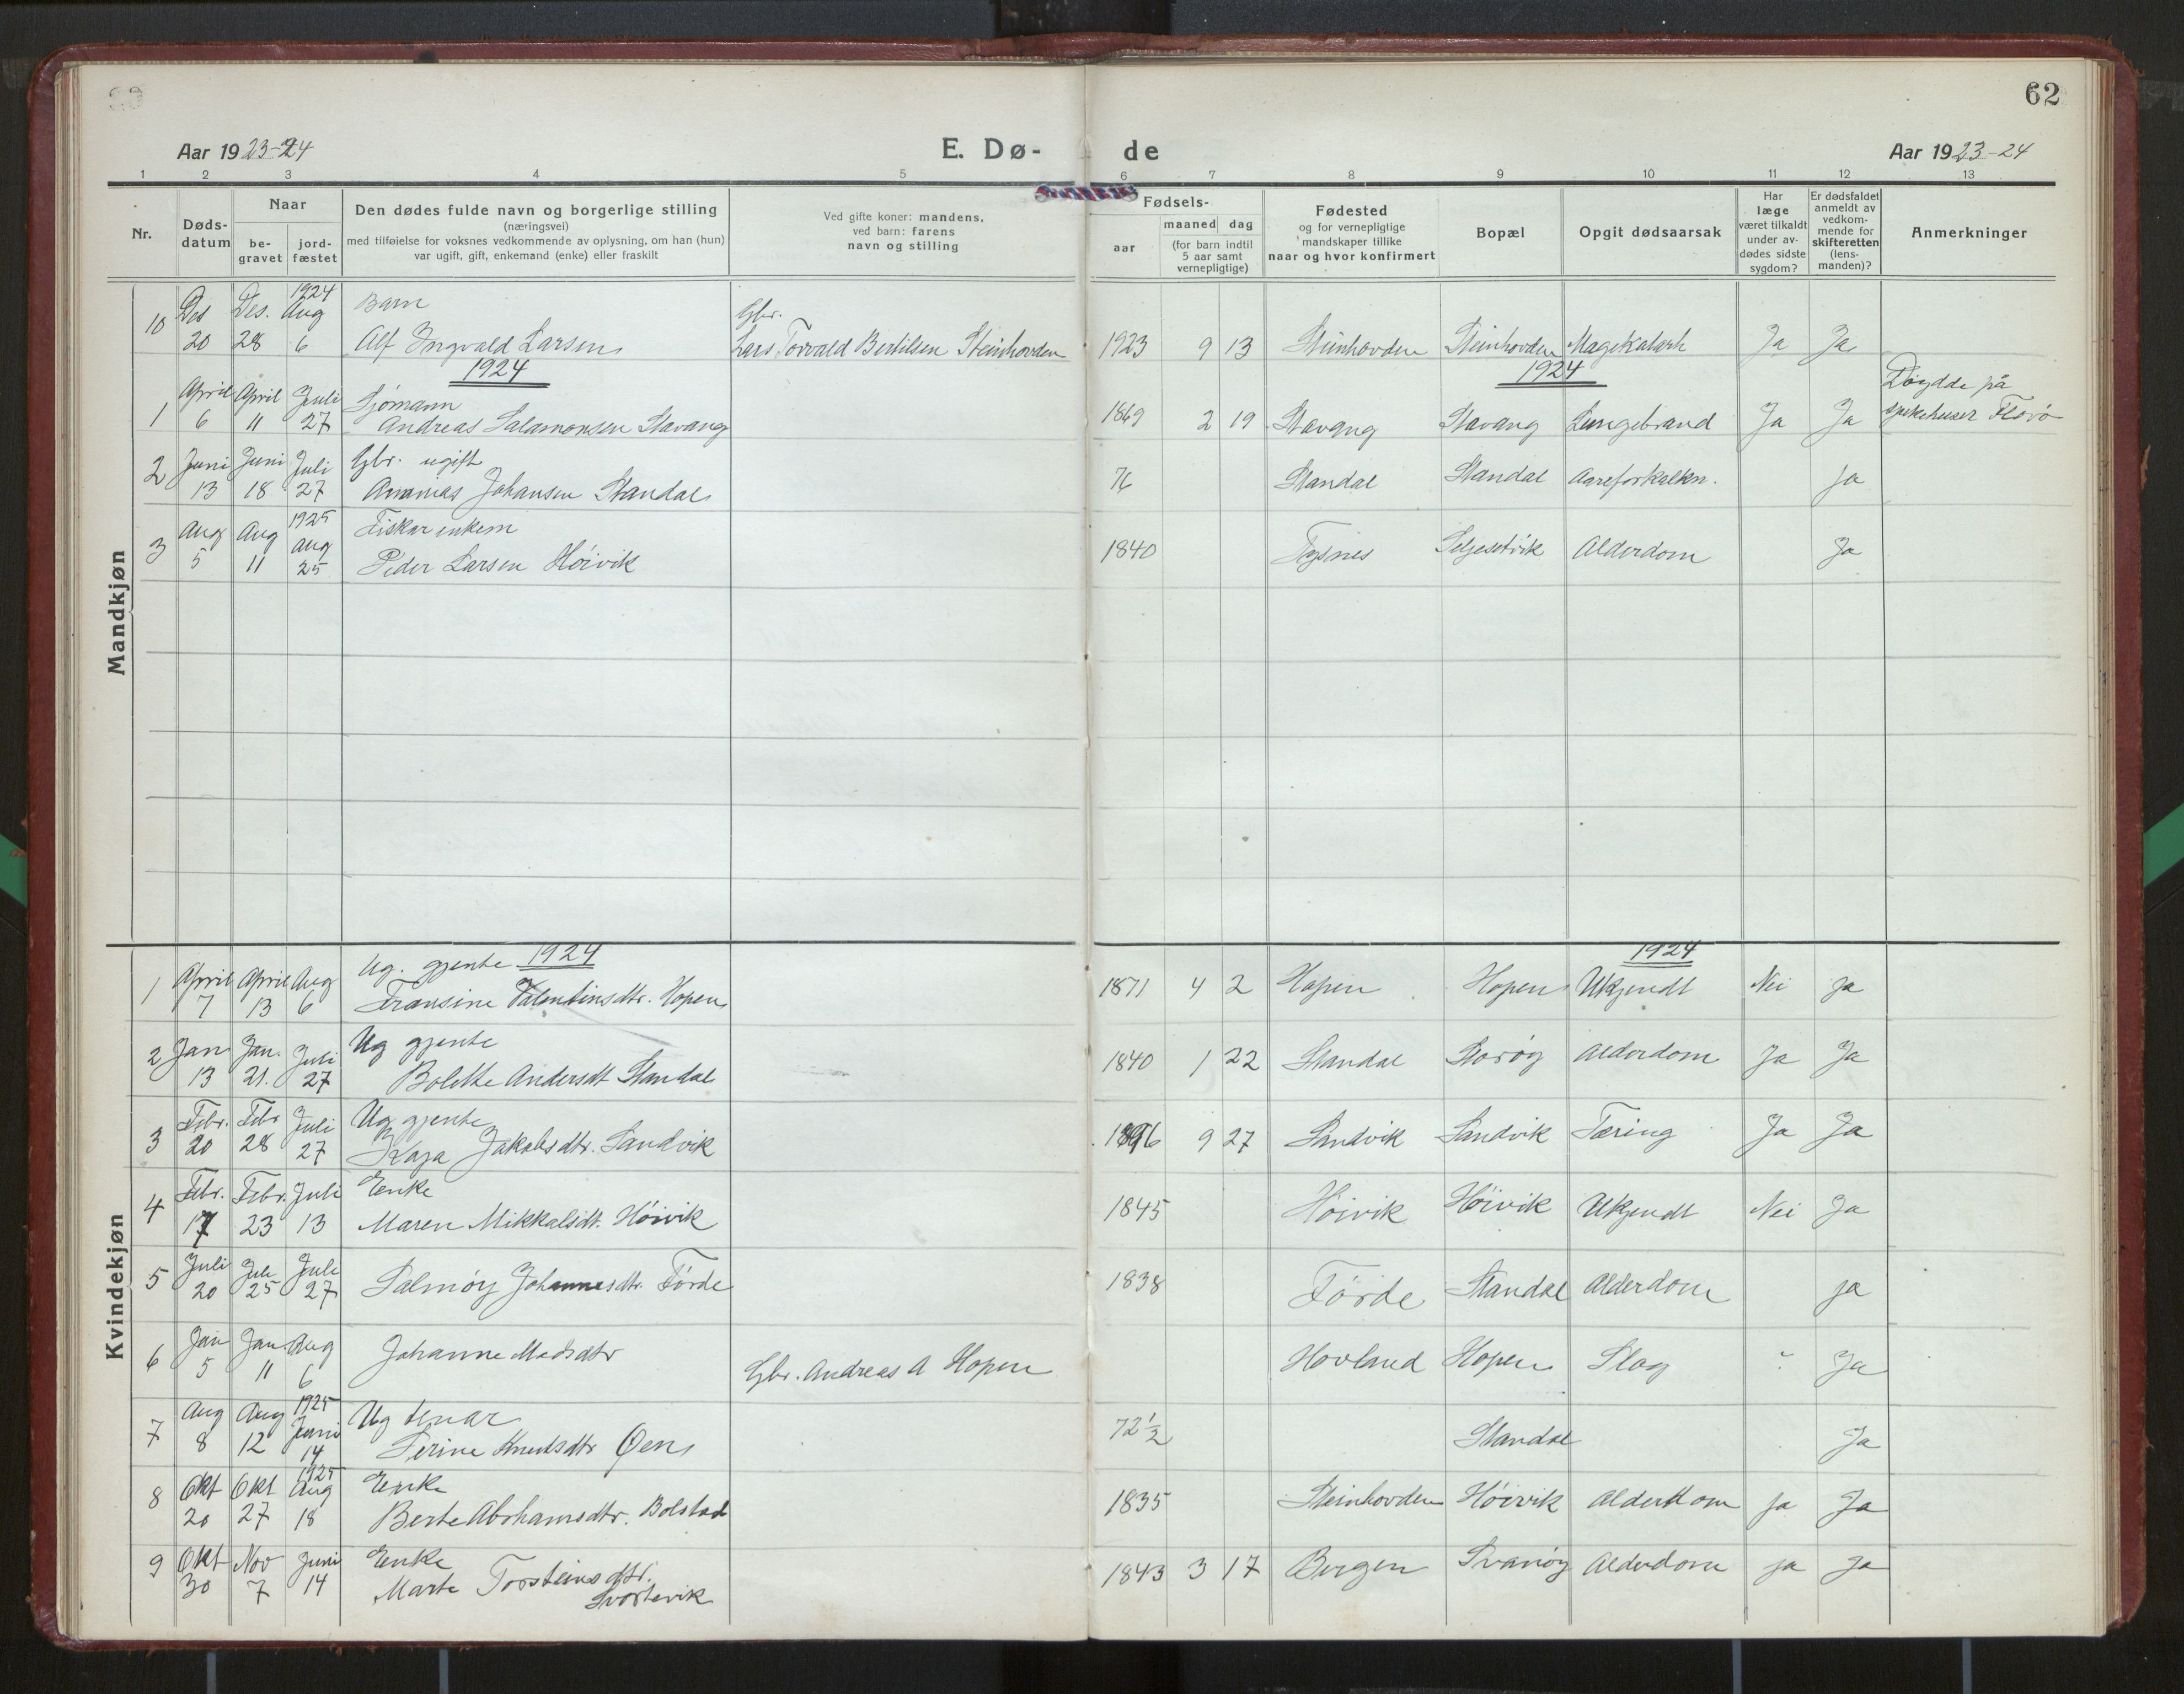 62
Aar 1923-24
E. Dø-
de
Aar 1923-24
1 2 3 4 5 6 7 8 9 10 11 12 13
Nr.
Døds-
datum
Naar
be-
gravet
jord-
fæstet
Den dødes fulde navn og borgerlige stilling
(næringsvei)
med tilføielse for voksnes vedkommende av oplysning, om han (hun)
var ugift, gift, enkemand (enke) eller fraskilt
Ved gifte koner: mandens,
ved barn: farens
navn og stilling
Fødsels-
aar
maaned dag
(for barn indtil
5 aar samt
vernepligtige)
Fødested
og for vernepligtige
mandskaper tillike
naar og hvor konfirmert
Bopæl
Opgit dødsaarsak
Har
læge
været tilkaldt
under av-
dødes sidste
sygdom?
Er dødsfaldet
anmeldt av
vedkom-
mende for
skifteretten
(lens-
manden)?
Anmerkninger
Mandkjøn
1924
Des Des. Aug Barn Gbr.
10 20 28 6 Alf Ingvald Larsen Lars Torvald Bertilsen Steinhovden 1923 9 13 Steinhovden Steinhovden Magekatarh Ja Ja
1924 1924
April April Juli Sjømann Døydde på
1 6 11 27 Andreas Salamonsen Stavang 1869 2 19 Stavang Stavang Lungebrand Ja Ja sjukehuset Florø
Juni Juni Juli Gbr. ugift
2 13 18 27 Ananias Johansen Standal 76 Standal Standal Aareforkalkn. ja
1925
Aug Aug Aug Fiskar enkem
3 5 11 25 Peder Larsen Høivik 1840 Tysnes Seljesetvik Alderdom Ja
Kvindekjøn
1924 1924
April April Aug Ug. gjente
1 7 13 6 Fransine Valentinsdtr. Hopen 1871 4 2 Hopen Hopen Ukjendt Nei ja
Jan Jan. Juli Ug gjente
2 13 21. 27 Bolette Andersdt Standal 1840 1 22 Standal Storøy Alderdom Ja Ja
Febr. Febr Juli Ug gjente
3 20 28 27 Kaja Jakobsdtr. Sandvik 1896 9 27 Sandvik Sandvik Tæring Ja Ja
Febr. Febr. Juli Enke
4 17 23 13 Maren Mikkalsdt. Høivik 1845 Høivik Høivik Ukjendt Nei Ja
Juli Juli Juli
5 20 25 27 Salmøy Johannesdtr. Førde 1838 Førde Standal Alderdom ja
Jan Jan Aug
6 5 11 6 Johanne Madsdtr Gbr. Andreas A Hopen Hovland Hopen Slag ? Ja
1925
Aug Aug Juni Ug tenar
7 8 12 14 Serine Knutsdtr Øen 72 1/2 Standal Ja
1925
Okt Okt Aug Enke
8 20 27 18 Berte Abrhamsdtr. Bolstad 1835 Steinhovden Høivik Alderdom ja Ja
Okt Nov Juni Enke
9 30 7 14 Marte Torsteinsdtr. 1843 3 17 Bergen Svanøy Alderdom ja Ja
Svortevik